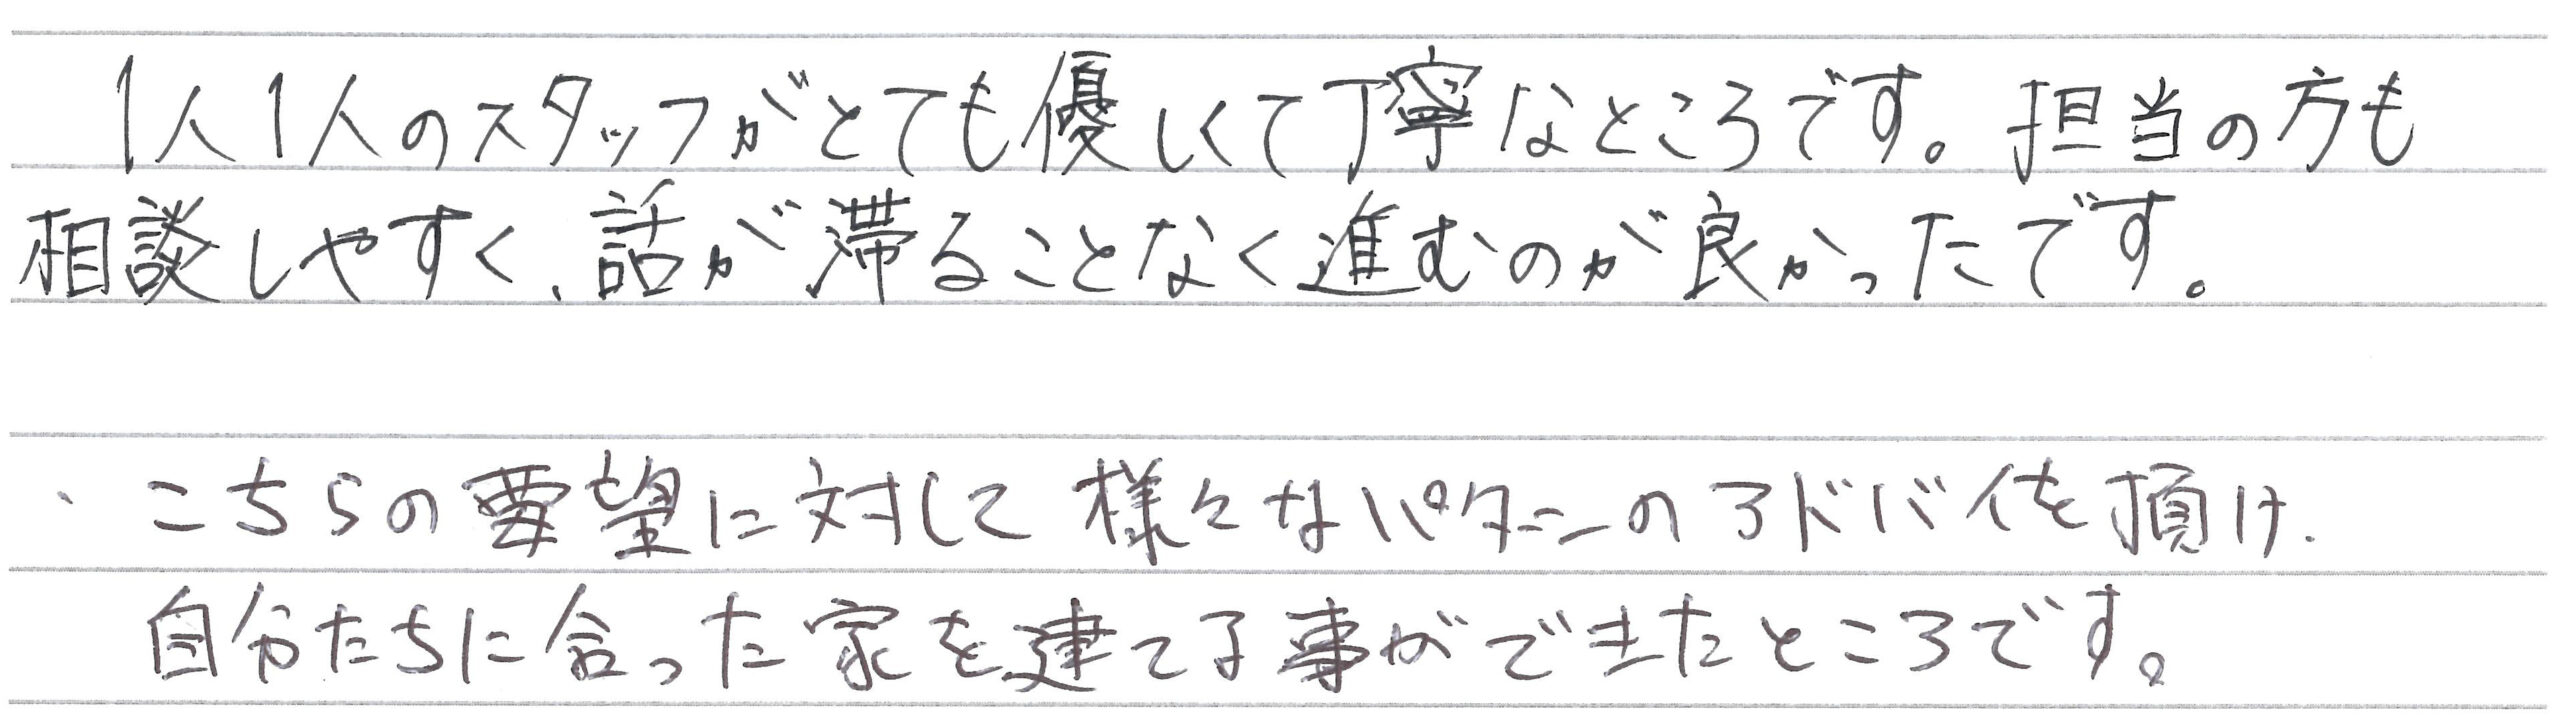 1人1人のスタッフがとても優しくて丁寧なところです。担当の方も
相談しやすく、話が滞ることなく進むのが良かったです。
・こちらの要望に対して様々なパターンのアドバイを頂け、
自分たちに合った家を建てる事ができたところです。